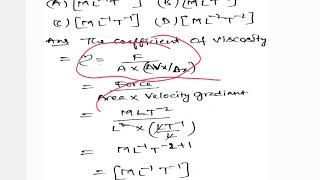 (A) [ML⁻¹T⁻¹] (B) [MLT⁻¹]
(C) [ML⁻¹T⁻¹] (D) [ML⁻²T⁻²]
Ans The coefficient of viscosity
= η = F / A × (ΔVx/Δx)
= Force / Area × Velocity gradient
= MLT⁻² / L² × (LT⁻¹/L)
= ML⁻¹T⁻²⁺¹
= [ML⁻¹T⁻¹]